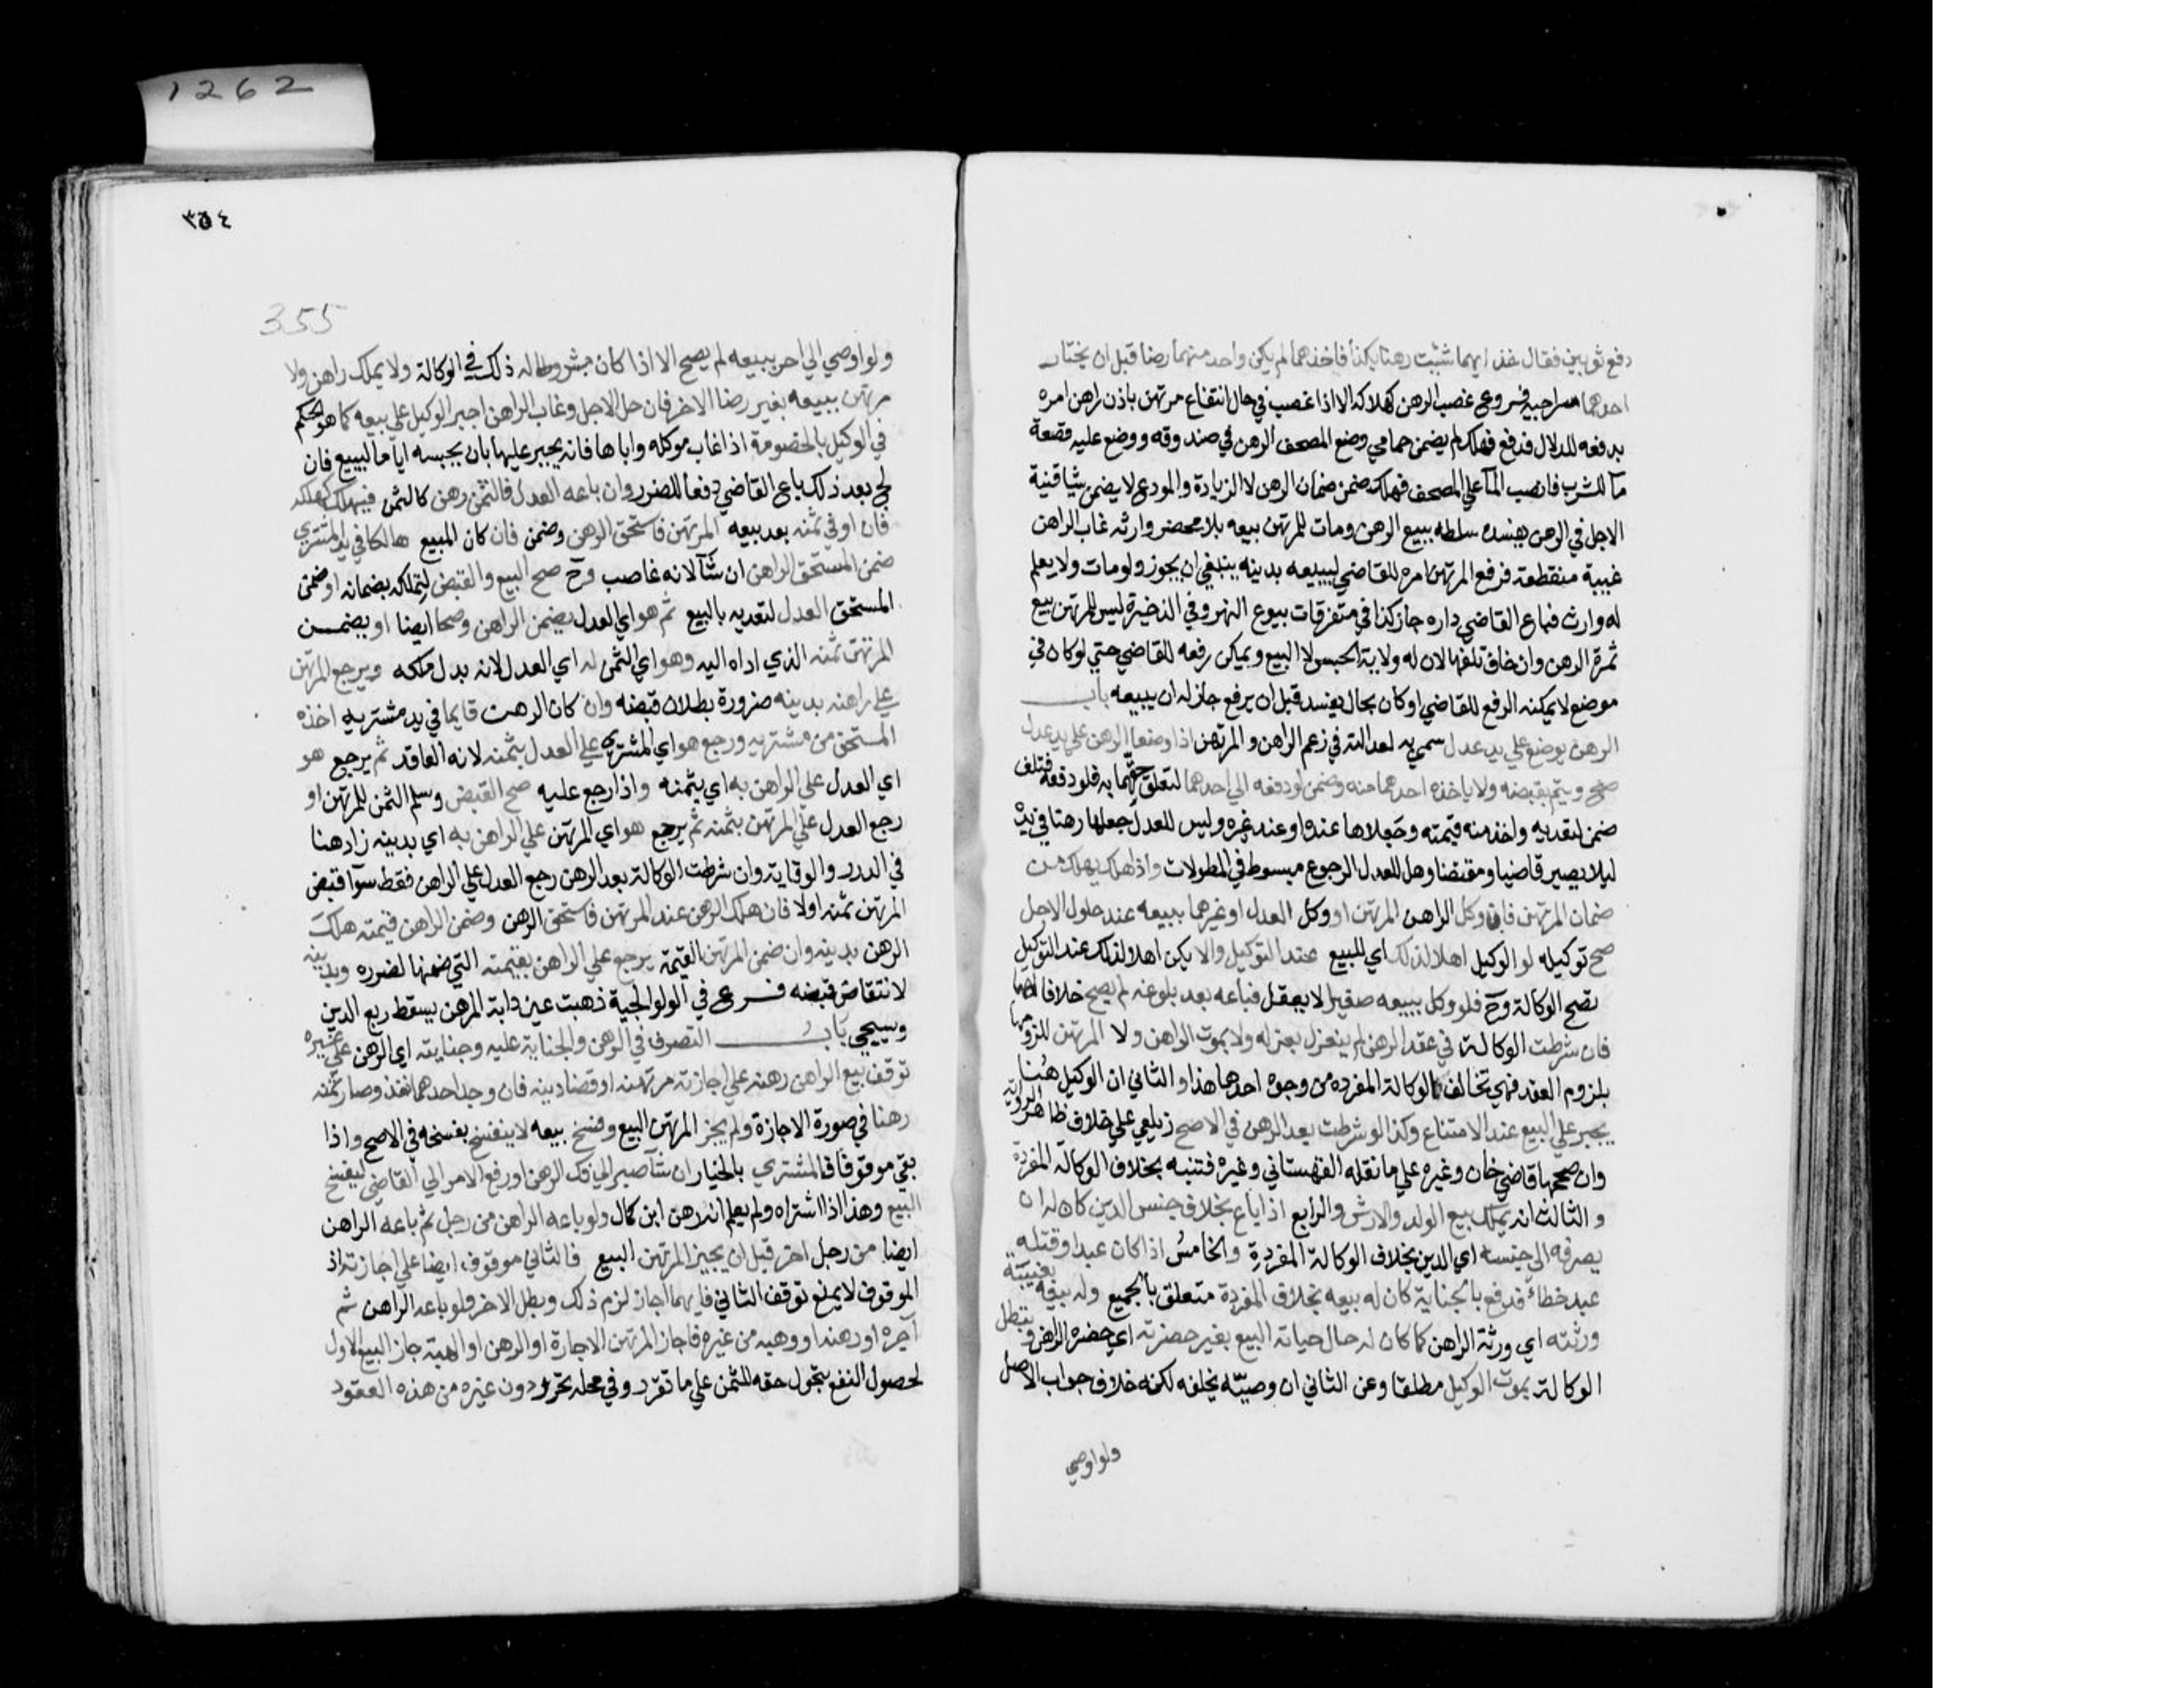 دفع ثوبين فقال خذ ايهما شئت رهنا بكذا فاخذهما لم يكن واحد منهما رهنا قبل ان يختار
احدهما سراجيه فروع غصب الرهن كهلاكه الا اذا غصب في حال انتفاع مرتهن باذن راهن امره
بدفعه للدلال فدفع فهلك لم يضمن حمامي وضع المصحف الرهن في صندوقه ووضع عليه قصعة
ماء للشرب فانصب الماء علي المصحف فهلك ضمن ضمان الرهن لا الزيادة والمودع لا يضمن شيا قنية
الاجل في الرهن يفسده سلطه ببيع الرهن ومات للمرتهن بيعه بلا محضر وارثه غاب الراهن
غيبة منقطعة فرفع المرتهن امره للقاضي ليبيعه بدينه ينبغي ان يجوز ولو مات ولا يعلم
له وارث فباع القاضي داره جاز كذا في متفرقات بيوع النهر وفي الذخيرة ليس للمرتهن بيع
ثمرة الرهن وان خاف تلفها لان له ولاية الحبس لا البيع ويمكن رفعه للقاضي حتي لو كان في
موضع لا يمكنه الرفع للقاضي او كان بحال يفسد قبل ان يرفع جاز له ان يبيعه باب
الرهن يوضع علي يد عدل سمي به لعدالته في زعم الراهن والمرتهن اذا وضعا الرهن علي يد عدل
صح ويتم بقبضه ولا ياخذه احدهما منه وضمن لو دفعه الي احدهما لتعلق حقهما به فلو دفعه فتلف
ضمن لتعديه واخذ منه قيمته وجعلاها عنده او عند غيره وليس للعدل جعلها رهنا في يده
ليلا يصير قاضيا ومقتضيا وهل للعدل الرجوع مبسوط في المطولات واذا هلك يهلك من
ضمان المرتهن فان وكل الراهن المرتهن او وكل العدل او غيرهما ببيعه عند حلول الاجل
صح توكيله لو الوكيل اهلا لذلك اي للبيع عند التوكيل والا يكن اهلا لذلك عند التوكيل
تصح الوكالة وح فلو وكل ببيعه صغيرا لا يعقل فباعه بعد بلوغه لم يصح خلافا لهما
فان شرطت الوكالة في عقد الرهن لم ينعزل بعزله ولا بموت الراهن ولا المرتهن للزومها
بلزوم العقد فهي تخالف الوكالة المفرده من وجوه احدها هذا والثاني ان الوكيل هنا
يجبر علي البيع عند الامتناع وكذا لو شرطت بعد الرهن في الاصح زيلعي علي خلاف ظاهر الرواية
وان صححها قاضي خان وغيره علي ما نقله القهستاني وغيره فتنبه بخلاف الوكالة المفردة
والثالث انه يملك بيع الولد والارش والرابع اذا باع بخلاف جنس الدين كان له ان
يصرفه الي جنسه اي الدين بخلاف الوكالة المفردة والخامس اذا كان عبدا وقتله
عبد خطاء فدفع بالجناية كان له بيعه بخلاف المفردة متعلق بالجميع وله بيعه بغيبة
ورثته اي ورثة الراهن كما كان له حال حياته البيع بغير حضرته اي حضرة الراهن وتبطل
الوكالة بموت الوكيل مطلقا وعن الثاني ان وصيه يخلفه لكنه خلاف جواب الاصل
ولو اوصي
٣٥٤
355
ولو اوصي الي اخر ببيعه لم يصح الا اذا كان مشروطا له ذلك في الوكالة ولا يملك راهن ولا
مرتهن ببيعه بغير رضا الاخر فان حل الاجل وغاب الراهن اجبر الوكيل علي بيعه كما هو الحكم
في الوكيل بالخصومة اذا غاب موكله واباها فانه يجبر عليها بان يحبسه اياما ليبيع فان
لج بعد ذلك باع القاضي دفعا للضرر وان باعه العدل فالثمن رهن كالثمن فيهلك كهلكه
فان اوفي ثمنه بعد بيعه المرتهن فاستحق الرهن وضمن فان كان المبيع هالكا في يد المشتري
ضمن المستحق الراهن ان شاء لانه غاصب وح صح البيع والقبض لتملكه بضمانه او ضمن
المستحق العدل لتعديه بالبيع ثم هو اي العدل يضمن الراهن وصحا ايضا او يضمن
المرتهن ثمنه الذي اداه اليه وهو اي الثمن له اي العدل لانه بدل ملكه ويرجع المرتهن
علي راهنه بدينه ضرورة بطلان قبضه وان كان الرهن قايما في يد مشتريه اخذه
المستحق من مشتريه ورجع هو اي المشتري علي العدل بثمنه لانه العاقد ثم يرجع هو
اي العدل علي الراهن به اي بثمنه واذا رجع عليه صح القبض وسلم الثمن للمرتهن او
رجع العدل علي المرتهن بثمنه ثم يرجع هو اي المرتهن علي الراهن به اي بدينه زاد هنا
في الدرر والوقاية وان شرطت الوكالة بعد الرهن رجع العدل علي الراهن فقط سواء قبض
المرتهن ثمنه اولا فان هلك الرهن عند المرتهن فاستحق الرهن وضمن الراهن قيمته هلك
الرهن بدينه وان ضمن المرتهن القيمة يرجع علي الراهن بقيمته التي ضمنها لضرره وبدينه
لانتقاض قبضه فروع في الولوالجية ذهبت عين دابة المرهن يسقط ربع الدين
وسيجي باب التصرف في الرهن والجناية عليه وجنايته اي الرهن علي غيره
توقف بيع الراهن رهنه علي اجازته مرتهنه او قضا دينه فان وجد احدهما نفذ وصار ثمنه
رهنا في صورة الاجازة ولم يجز المرتهن البيع وفسخ بيعه لا ينفسخ بفسخه في الاصح واذا
بقي موقوفا فالمشتري بالخيار ان شاء صبر الي فك الرهن او رفع الامر الي القاضي ليفسخ
البيع وهذا اذا اشتراه ولم يعلم انه رهن ابن كمال ولو باعه الراهن من رجل ثم باعه الراهن
ايضا من رجل اخر قبل ان يجيز المرتهن البيع فالثاني موقوف ايضا علي اجازته اذ
الموقوف لا يمنع توقف الثاني فايهما اجاز لزم ذلك وبطل الاخر فلو باعه الراهن ثم
آجره او رهنه او وهبه من غيره فاجاز المرتهن الاجارة او الرهن او الهبة جاز البيع الاول
لحصول النفع بتحول حقه للثمن علي ما تقرر وفي محله تحرر دون غيره من هذه العقود
1262